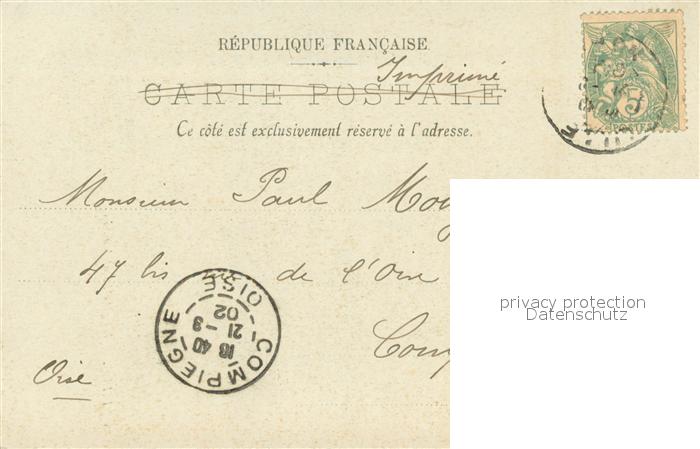 RÉPUBLIQUE FRANÇAISE
Imprimé
CARTE POSTALE
Ce côté est exclusivement réservé à l'adresse.
5
Monsieur Paul
47 bis rue de l'Oise
privacy protection
Datenschutz
COMPIEGNE
OISE
18 40
21 - 3
02
Oise